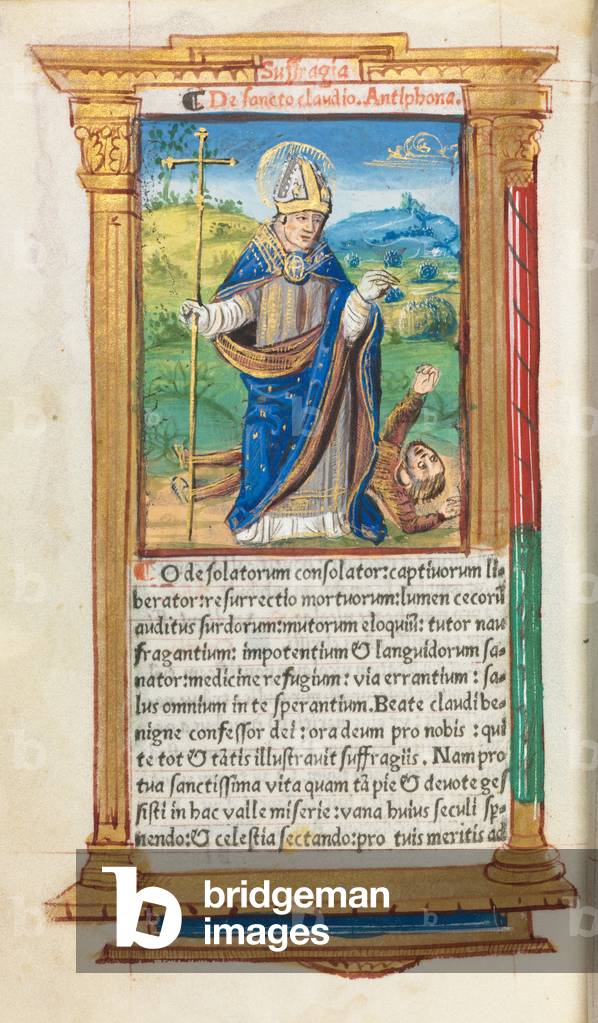 Suffragia
¶ De sancto claudio. Antiphona.
¶ O desolatorum consolator: captiuorum li-
berator: resurrectio mortuorum: lumen cecorū
auditus surdorum: mutorum eloquiū: tutor nau
fragantium: impotentium & languidorum sa-
nator: medicine refugium: via errantium: sa-
lus omnium in te sperantium. Beate claudi be-
nigne confessor dei: ora deum pro nobis: qui
te tot & tātis illustrauit suffragiis. Nam pro
tua sanctissima vita quam tā pie & deuote ges
sisti in hac valle miserie: vana huius seculi sper-
nendo: & celestia sectando: pro tuis meritis ad
b bridgeman
images